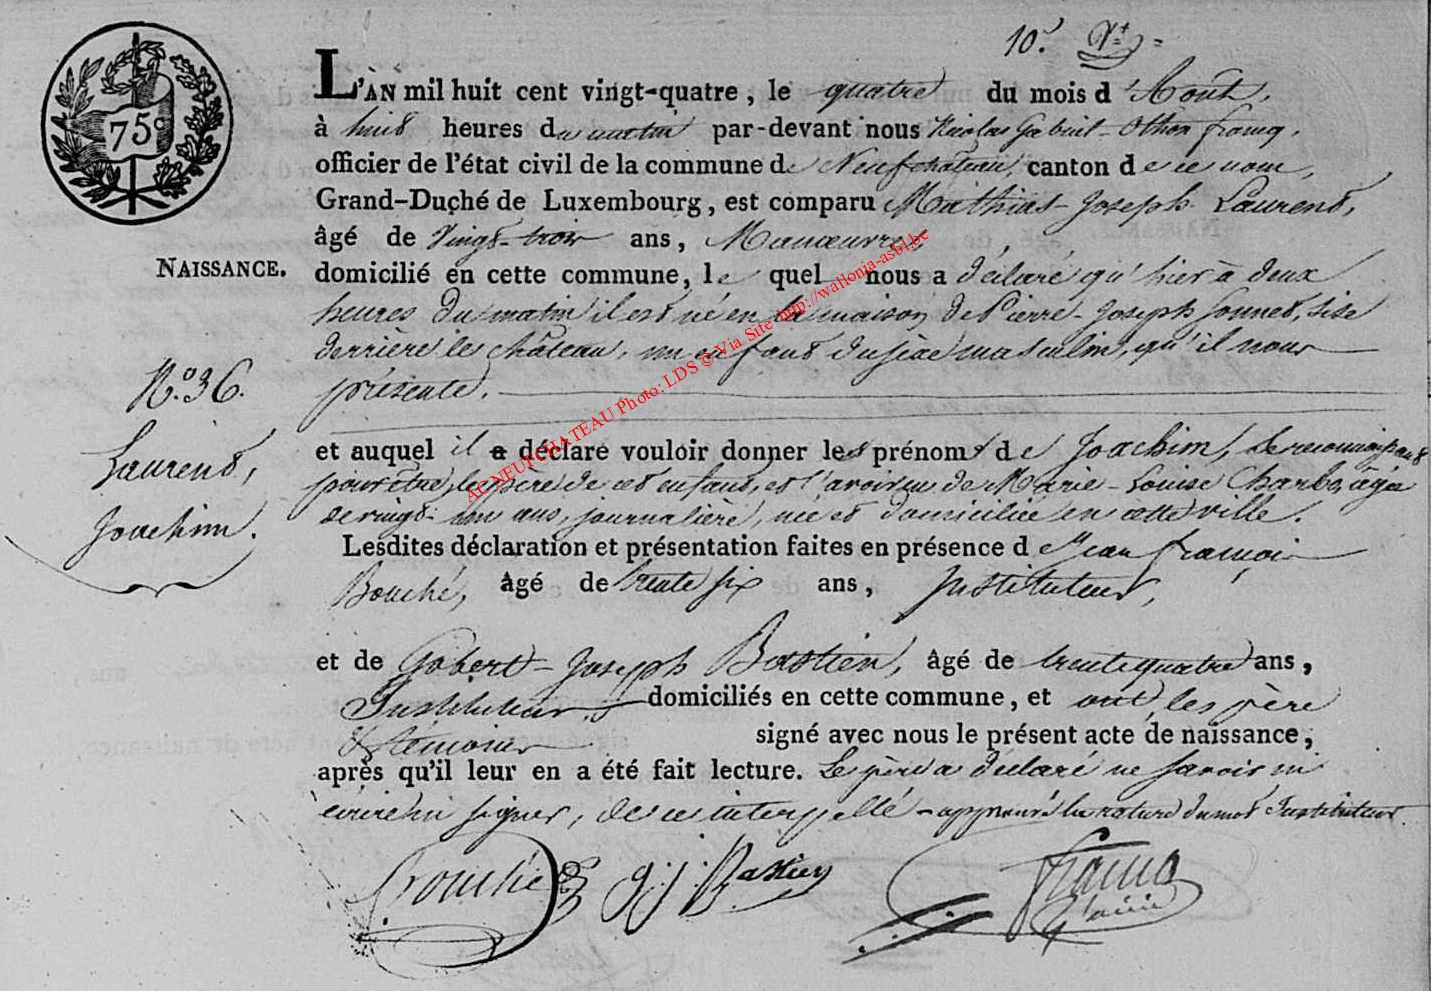 10.e Vt
75c
L'AN mil huit cent vingt-quatre, le quatre du mois d'Août,
à huit heures du matin par-devant nous Nicolas Gabriel Othon francq,
officier de l'état civil de la commune de Neufchâteau, canton de ce nom,
Grand-Duché de Luxembourg, est comparu Mathias Joseph Laurent,
âgé de Vingt-trois ans, Manoeuvre,
NAISSANCE.
domicilié en cette commune, le quel nous a déclaré qu'hier à deux
heures du matin il est né en la maison de Pierre-Joseph Sonnet, sise
derrière le château, un enfant du sexe masculin, qu'il nous
présente.
N.o 36.
Laurent,
Joachim.
et auquel il a déclaré vouloir donner les prénoms de Joachim, se reconnaissant
pour être le père de cet enfant, et l'avoir eu de Marie-Louise Charbo, âgée
de vingt-un ans, journalière, née et domiciliée en cette ville.
Lesdites déclaration et présentation faites en présence de Jean françois
Bouché, âgé de trente six ans, Instituteur,
et de Gobert-Joseph Bastien, âgé de trente quatre ans,
Instituteur, domiciliés en cette commune, et ont, les père
& témoins signé avec nous le présent acte de naissance,
après qu'il leur en a été fait lecture. Le père a déclaré ne savoir ni
écrire ni signer, de ce interpellé - approuvé la rature du mot Instituteur.
Bouché g. j. Bastien francq
AGNEUFCHATEAU Photo: LDS © Via Site http://wallonia-asbl.be